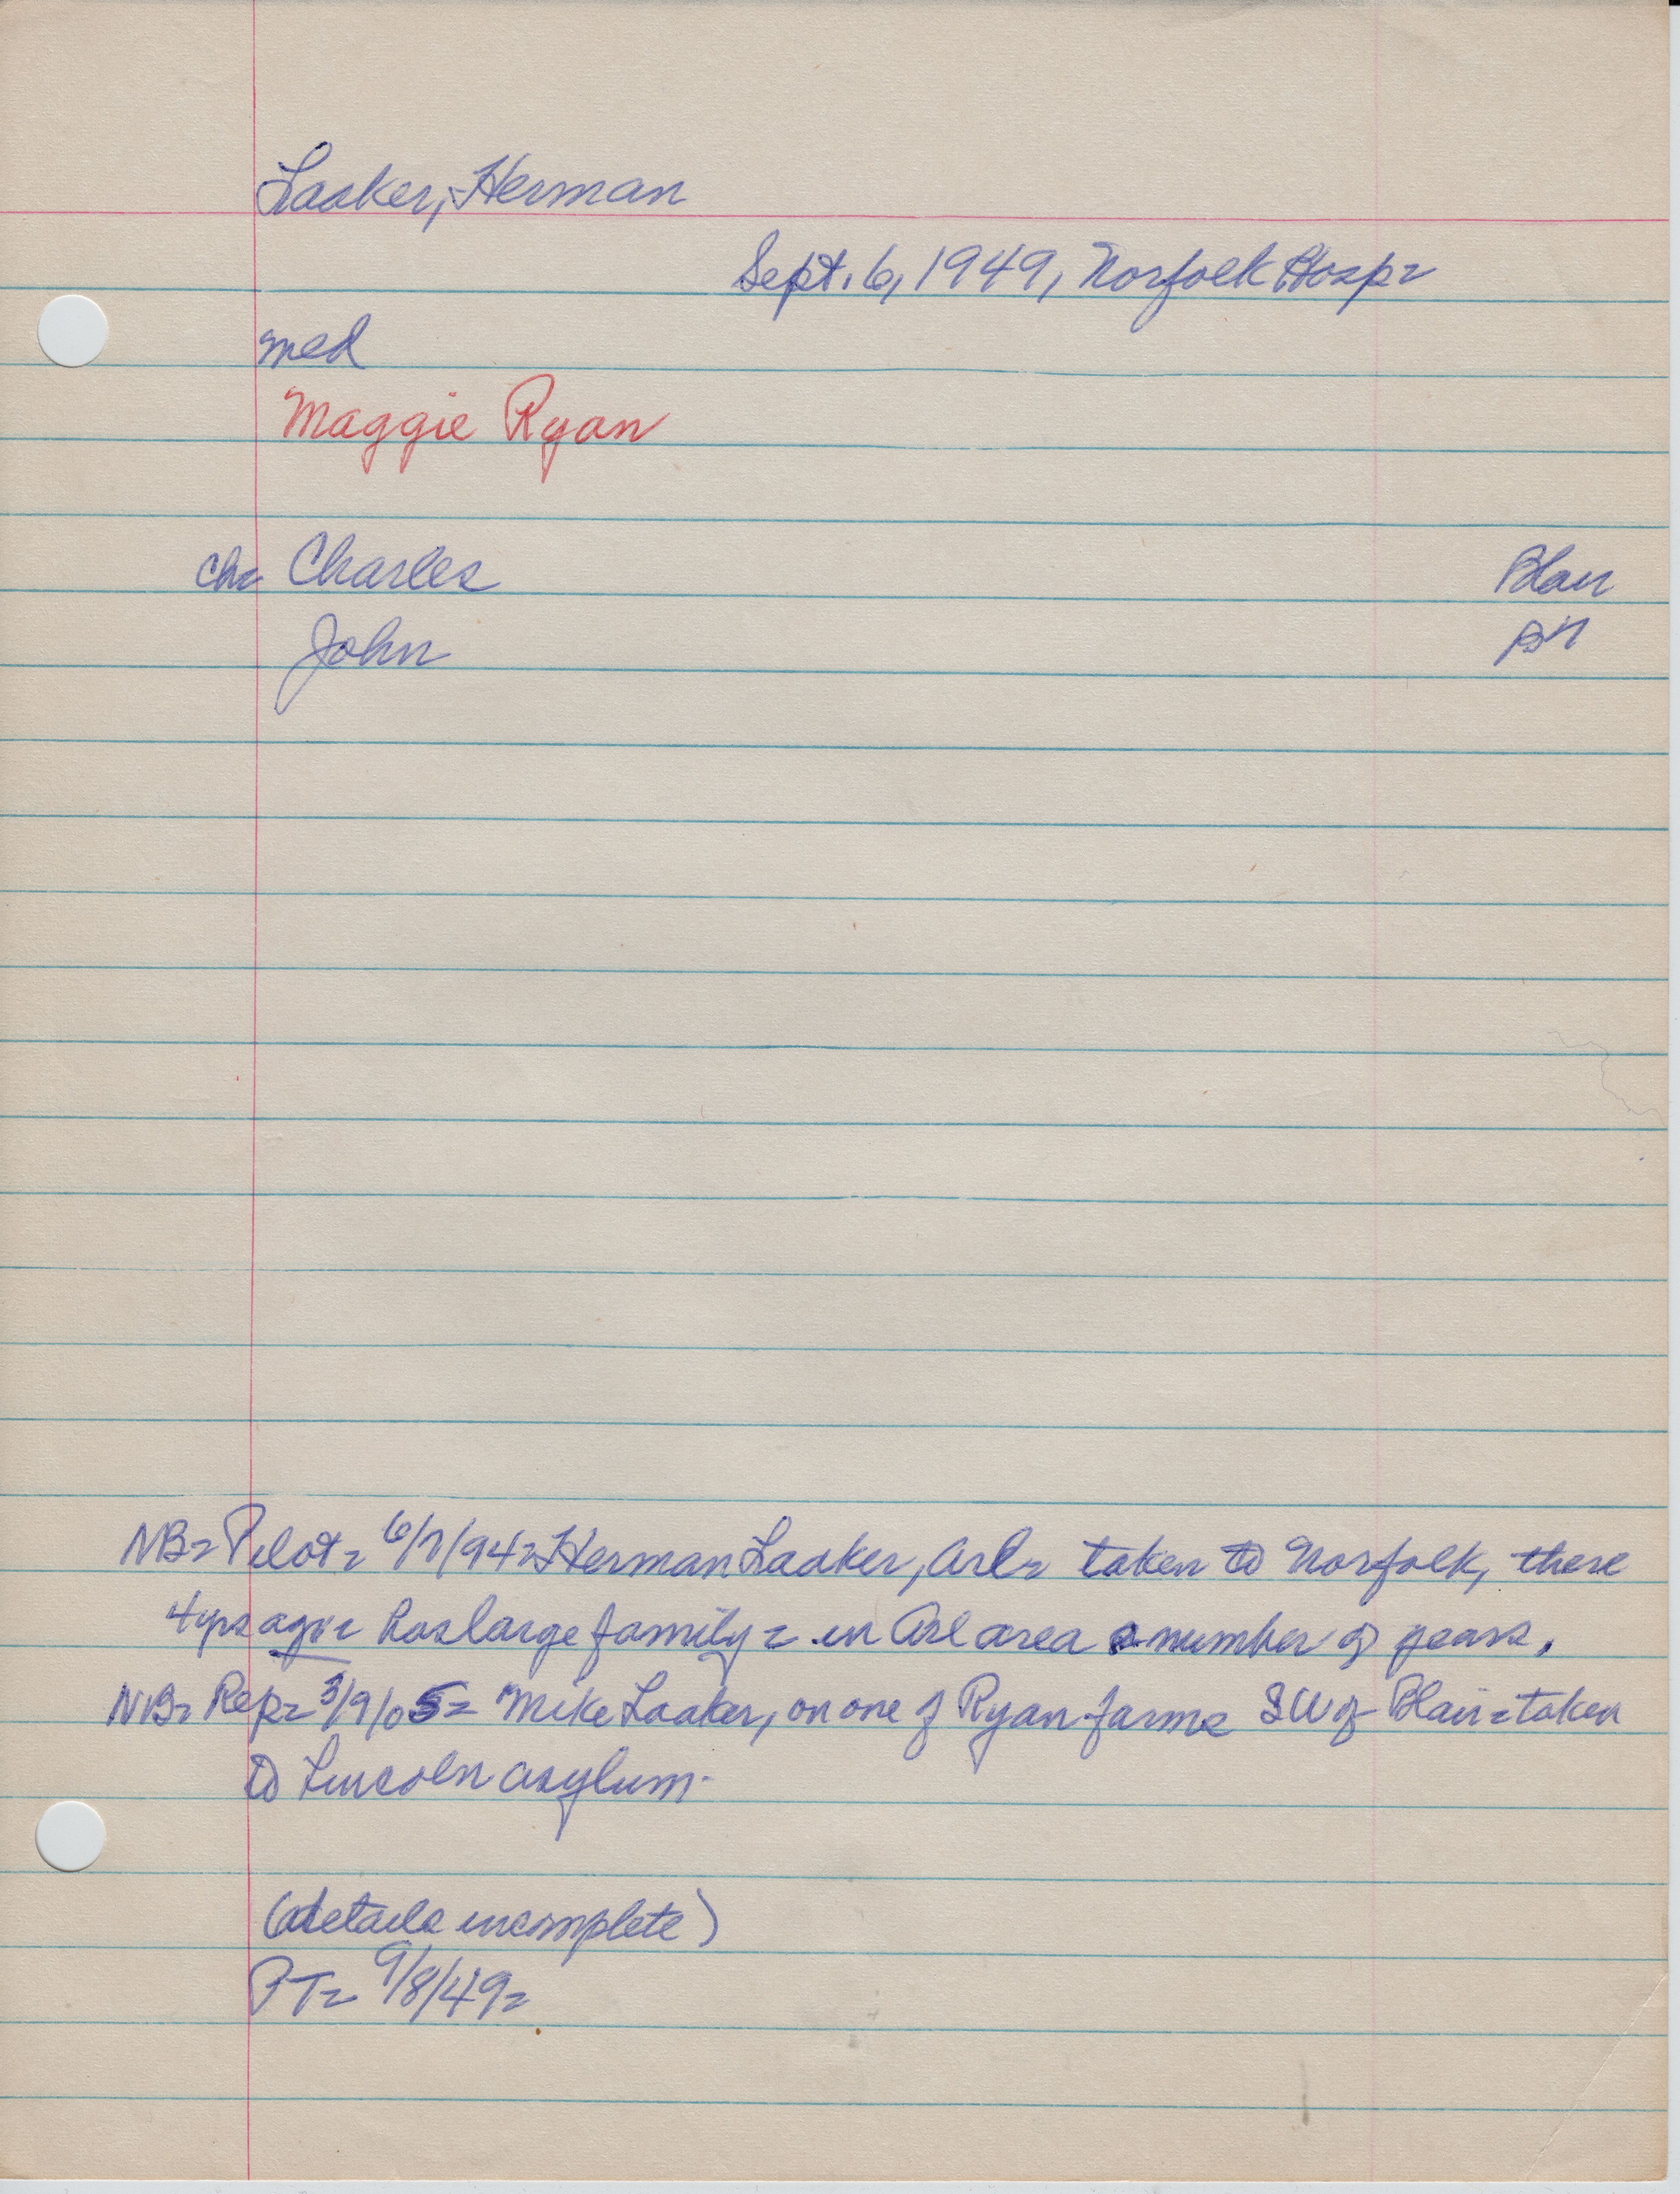 Laaker, Herman
Sept. 6, 1949, Norfolk Hosp=
med
Maggie Ryan
ch= Charles Blair
John
NB= Pilot= 6/7/94= Herman Laaker, Arl= taken to Norfolk, there
4 yrs ago= has large family= in Arl area a number of years.
NB= Rep= 3/9/05= Mike Laaker, on one of Ryan farms SW of Blair= taken
to Lincoln asylum.
(details incomplete)
PT= 9/8/49=